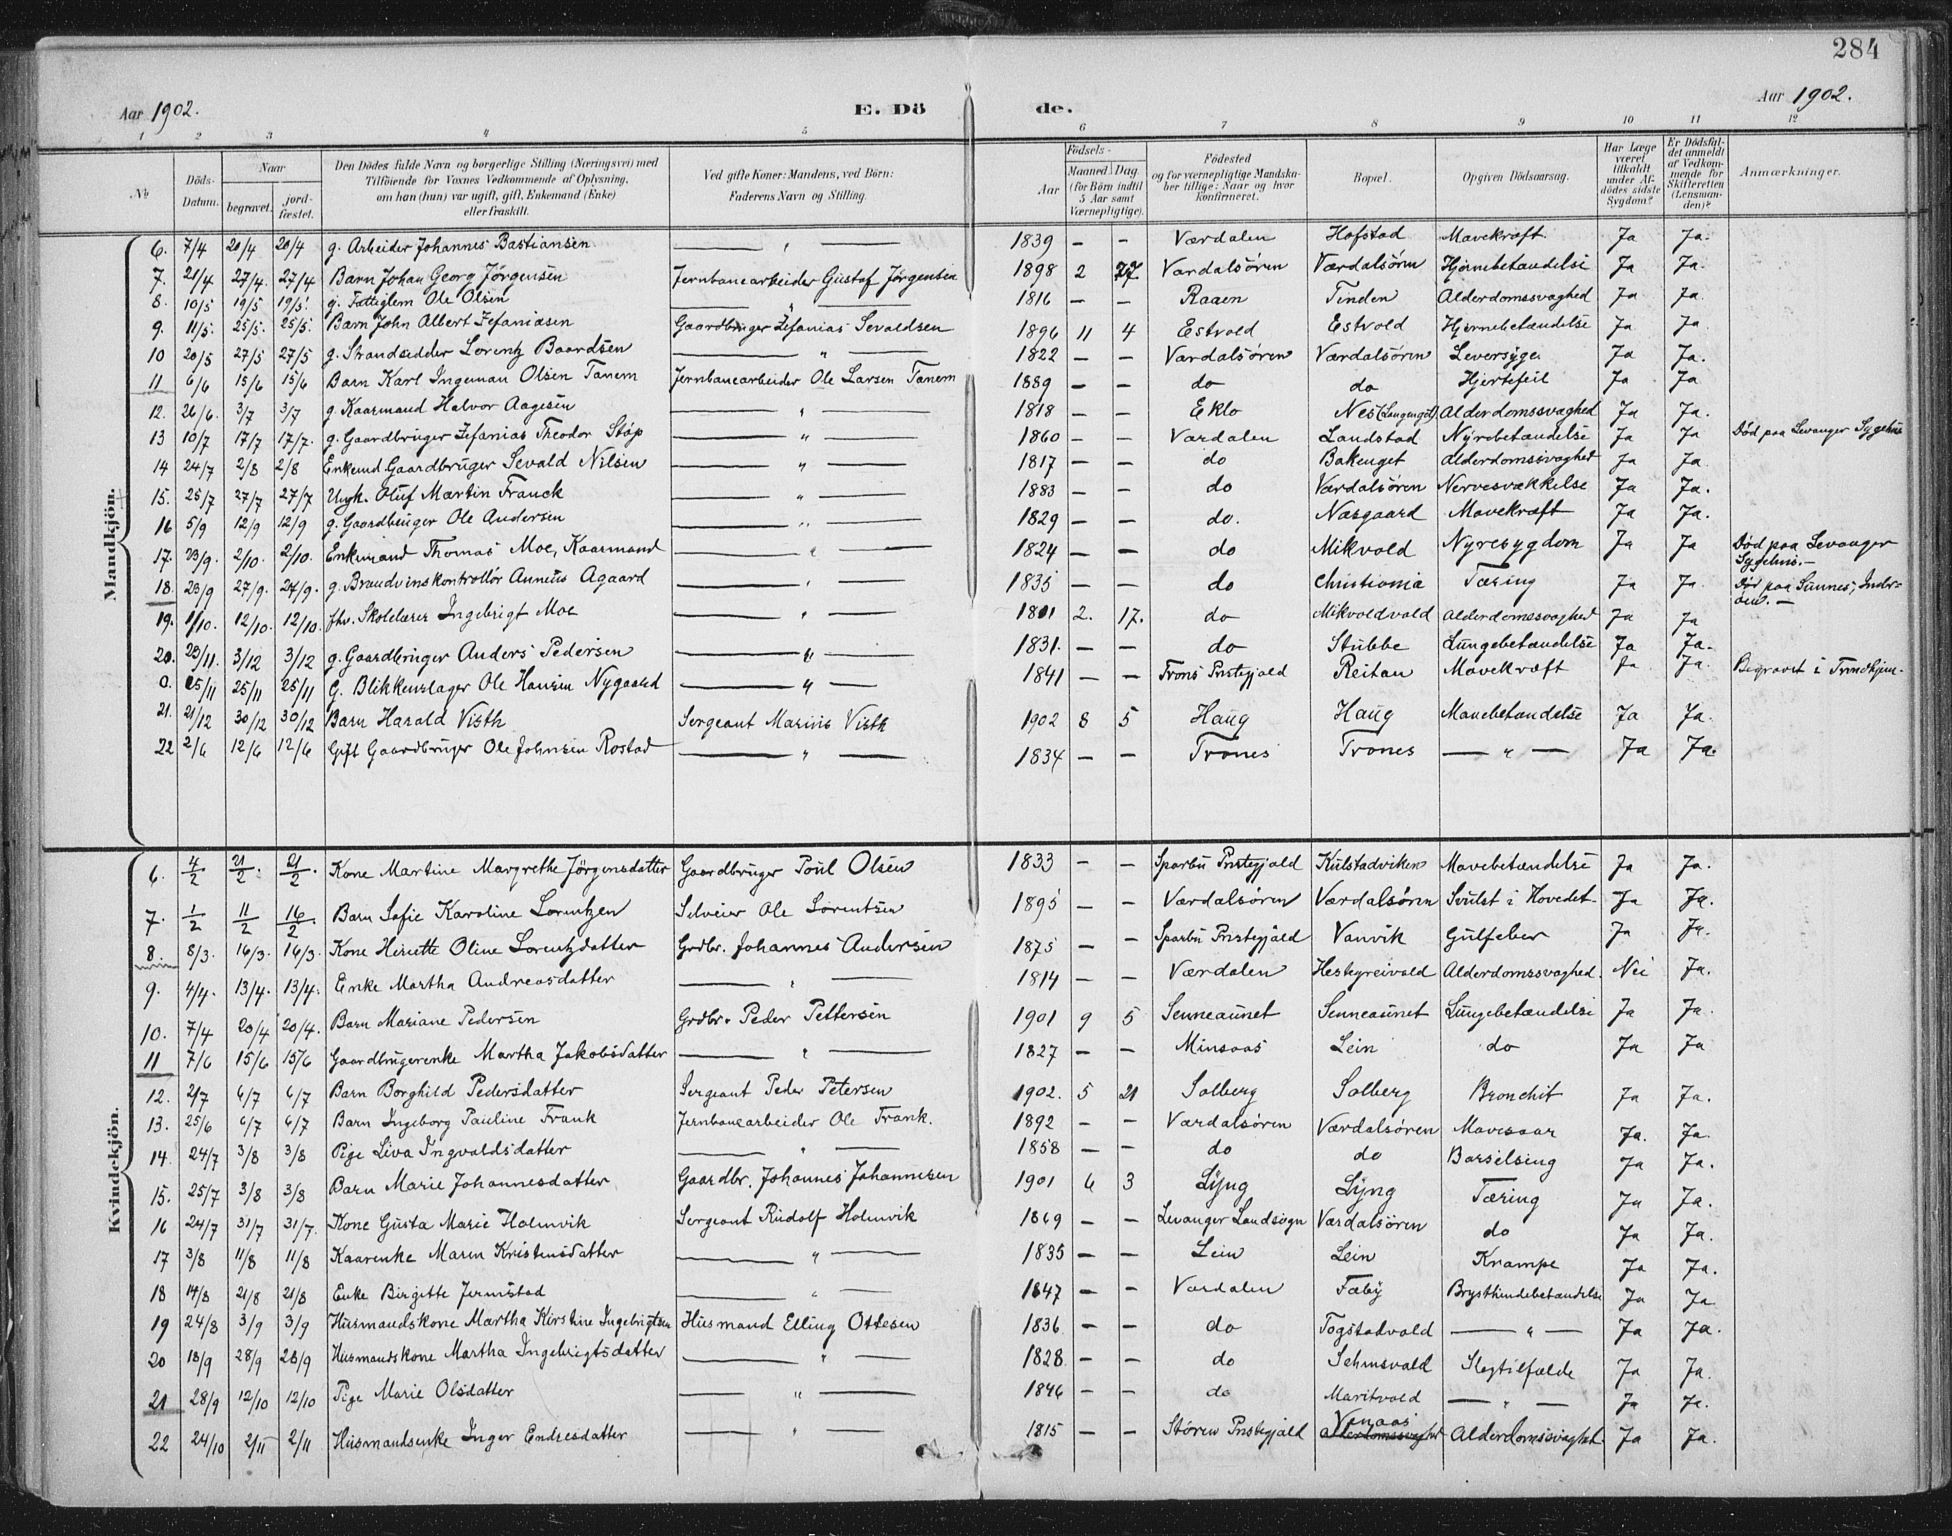 284
Aar 1902. E. Dö de. Aar 1902.
1 2 3 4 5 6 7 8 9 10 11 12
No Döds-Datum. Naar begravet. jord-fæstet. Den Dödes fulde Navn og borgerlige Stilling (Næringsvei) med Tilföiende for Voxnes Vedkommende af Oplysning, om han (hun) var ugift, gift, Enkemand (Enke) eller fraskilt. Ved gifte Koner: Mandens, ved Börn: Faderens Navn og Stilling. Födsels- Aar Maaned Dag (for Börn indtil 5 Aar samt Værnepligtige). Födested og for værnepligtige Mandskaber tillige: Naar og hvor konfirmeret. Bopæl. Opgiven Dödsaarsag. Har Læge været tilkaldt under Afdödes sidste Sygdom? Er Dödsfaldet anmeldt af Vedkommende for Skifteretten (Lensmanden)? Anmærkninger.
Mandkjön.
6. 7/4 20/4 20/4 g. Arbeider Johannes Bastiansen — " — 1839 — — Værdalen Hofstad Mavekræft. Ja Ja.
7. 21/4 27/4. 27/4 Barn Johan Georg Jörgensen Jernbanearbeider Gustaf Jörgensen 1898 2 27. Værdalsören Værdalsören Hjernebetændelse Ja Ja.
8. 10/5 19/5 19/5. g. Fattiglem Ole Olsen — " — 1816 — — Raaen Tinden Alderdomssvaghed Ja Ja.
9. 11/5. 25/5. 25/5. Barn John Albert Zefaniasen Gaardbruger Zefanias Sevaldsen 1896 11 4 Estvold Estvold Hjernebetændelse Ja Ja.
10 20/5 27/5 27/5 g. Strandsidder Lorentz Baardsen — " — 1822 — — Værdalsören Værdalsören Leversyge Ja Ja.
11 6/6 15/6 15/6 Barn Karl Ingeman Olsen Tanem Jernbanearbeider Ole Larsen Tanem 1889 — — do do Hjertefeil Ja Ja
12. 26/6. 3/7 3/7 g. Kaarmand Halvor Aagesen — " — 1818 — — Eklo Nes Alderdomssvaghed Ja Ja.
13 10/7 17/7 17/7. g. Gaardbruger Zefanias Theodor Stöp — " — 1860 — — Værdalen Landstad Nyrebetændelse Ja Ja Död paa Levanger Sygehus
14 24/7 2/8 2/8 Enkemd Gaardbruger Sevald Nilsen — " — 1817 — — do Bakenget Alderdomssvaghed Ja Ja.
15. 25/7 27/7 27/7 Ungk. Oluf Martin Franck — " — 1883 — — do Værdalsören Nervesvækkelse Ja Ja.
16 5/9 12/9 12/9 g. Gaardbruger Ole Andersen — " — 1829 — — do. Næsgaard Mavekræft Ja Ja.
17. 23/9. 2/10. 2/10. Enkemand Thomas Moe, Kaarmand — " — 1824 — — do Mikvold Nyresygdom Ja Ja Död paa Levanger Sygehus. —
18. 23/9 27/9. 27/9. g. Brændvinskontrollör Anneus Agaard — " — 1835 — — do Christiania Tæring Ja Ja. Död paa Sunnes, Inderöen. —
19. 1/10. 12/10. 12/10. fhv. Skolelærer Ingebrigt Moe — " — 1801 2. 17. do Mikvoldvald Alderdomssvaghed Ja Ja
20. 29/11. 3/12 3/12 g. Gaardbruger Anders Pedersen — " — 1831. — — do Stubbe Lungebetændelse Ja Ja.
0. 25/11 25/11 25/11 G. Blikkenslager Ole Hansen Nygaard — " — 1841 — — Præstegjeld Reitan Mavekræft Ja Ja. Begravet i Trondhjem
21. 21/12 30/12 30/12 Barn Harald Visth Sergeant Marius Visth 1902 8 5 Haug Haug Mavebetændelse Ja Ja.
22 2/6 12/6 12/6 Gift Gaardbruger Ole Johnsen Rostad — " — 1834 — — Trones Trones — " — Ja Ja.
Kvindekjön.
6. 4/2 21/2. 21/2. Kone Martine Margrethe Jörgensdatter Gaardbruger Poul Olsen 1833 — — Sparbu Prstegjæld Kulstadviken Mavebetændelse Ja Ja.
7. 1/2 11/2 16/2. Barn Sofie Karoline Lorentzen Selveier Ole Lorentsen 1895 — — Værdalsören Værdalsören Svulst i Hovedet. Ja Ja.
8. 8/3. 16/3. 16/3. Kone Henette Oline Lorentzdatter Grdbr. Johannes Andersen 1875 — — Sparbu Prstegjæld Vanvik Gulfeber Ja Ja.
9. 4/4. 13/4. 13/4. Enke Martha Andreasdatter — " — 1814 — — Værdalen Hestegreivald Alderdomssvaghed. Nei Ja.
10. 7/4 20/4 20/4. Barn Mariane Pedersen Grdbr. Peder Pettersen 1901 9 5 Senneaunet Senneaunet Lungebetændelse Ja Ja.
11 7/6 15/6 15/6 Gaardbrugerenke Martha Jakobsdatter — " — 1827 — — Minsaas Lein do Ja Ja
12. 2/7 6/7 6/7 Barn Borghild Pedersdatter Sergeant Peder Petersen 1902. 5 21 Solberg Solberg Bronchit Ja Ja.
13. 25/6 6/7 6/7 Barn Ingeborg Pauline Frank Jernbanearbeider Ole Frank. 1892 — — Værdalsören Værdalsören Mavesaar Ja. Ja.
14. 24/7 3/8 3/8 Pige Liva Ingvaldsdatter — " — 1858 — — do do Barselseng Ja Ja.
15. 25/7 3/8 3/8 Barn Marie Johannesdatter Gaardbr. Johannes Johannesen 1901 6 3 Lyng Lyng Tæring Ja Ja.
16 24/7 31/7 31/7. Kone Gusta Marie Holmvik Sergeant Rudolf Holmvik 1869 — — Levanger Landsogn Værdalsören do Ja Ja.
17 3/8 11/8 11/8 Kaarenke Maren Kristensdatter — " — 1835 — — Lein Lein Krampe Ja Ja.
18 14/8 21/8 21/8 Enke Birgitte Jermstad — " — 1847 — — Værdalen Fæby Brysthindebetændelse Ja Ja
19 24/8 3/9 3/9 Husmandskone Martha Kirstine Ingebrigtsen Husmand Elling Ottesen 1836 — — do Togstadvald — " — Ja Ja.
20 18/9 28/9 28/9 Husmandskone Martha Ingebrigtsdatter — " — 1828. — — do Sehmsvald Slagtilfælde Ja Ja.
21 28/9 12/10 12/10 Pige Marie Olsdatter — " — 1846 — — do Maritvald — " — Ja Ja.
22 24/10 2/11 2/11 Husmandsenke Inger Endresdatter — " — 1815 — — Stören Prstegjæld Alderdomssvaghed Vanaas Alderdomssvaghet. Ja Ja.